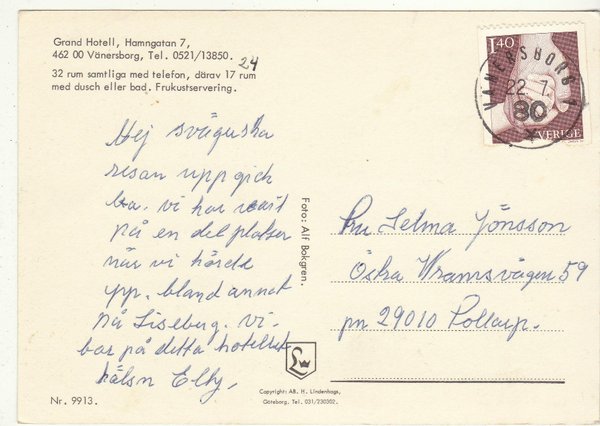 Grand Hotell, Hamngatan 7,
462 00 Vänersborg, Tel. 0521/13850.
24
32 rum samtliga med telefon, därav 17 rum
med dusch eller bad. Frukostservering.
1.40
SVERIGE
VÄNERSBORG 1
22. 7.
80
Hej sväguska
resan upp gick
bra. vi har varit
på en del platser
när vi hörde
upp. bland annat
på Liseberg. vi
bor på detta hotellet
hälsn Elly,
Foto: Alf Bokgren.
Fru Selma Jönsson
Östra Vramsvägen 59
pn 29010 Tollarp.
L
Copyright: AB. H. Lindenhags,
Göteborg, Tel. 031/230302.
Nr. 9913.